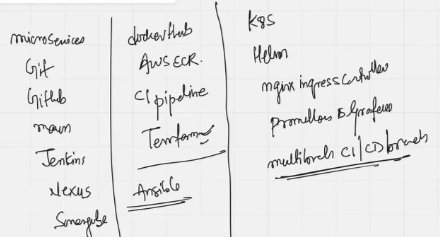 microservices
Git
Github
maven
Jenkins
Nexus
Sonarqube
dockerHub
AWS ECR.
CI pipeline
Terraform
Ansible
K8S
Helm
nginx ingress controller
prometheus & grafana
multibranch CI/CD branch